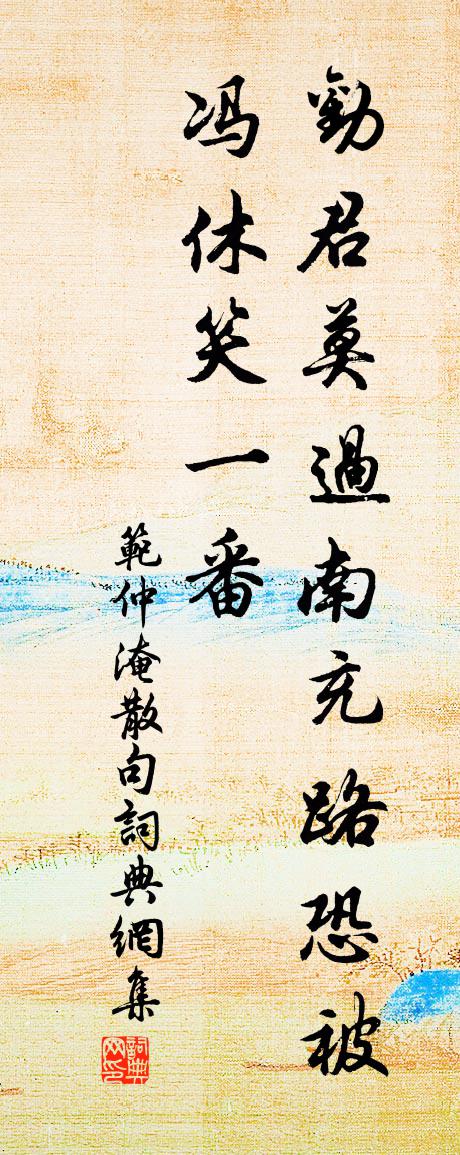 勸君莫過南充路恐被
冯休笑一番
範仲淹散句詞典網集
詞典网印